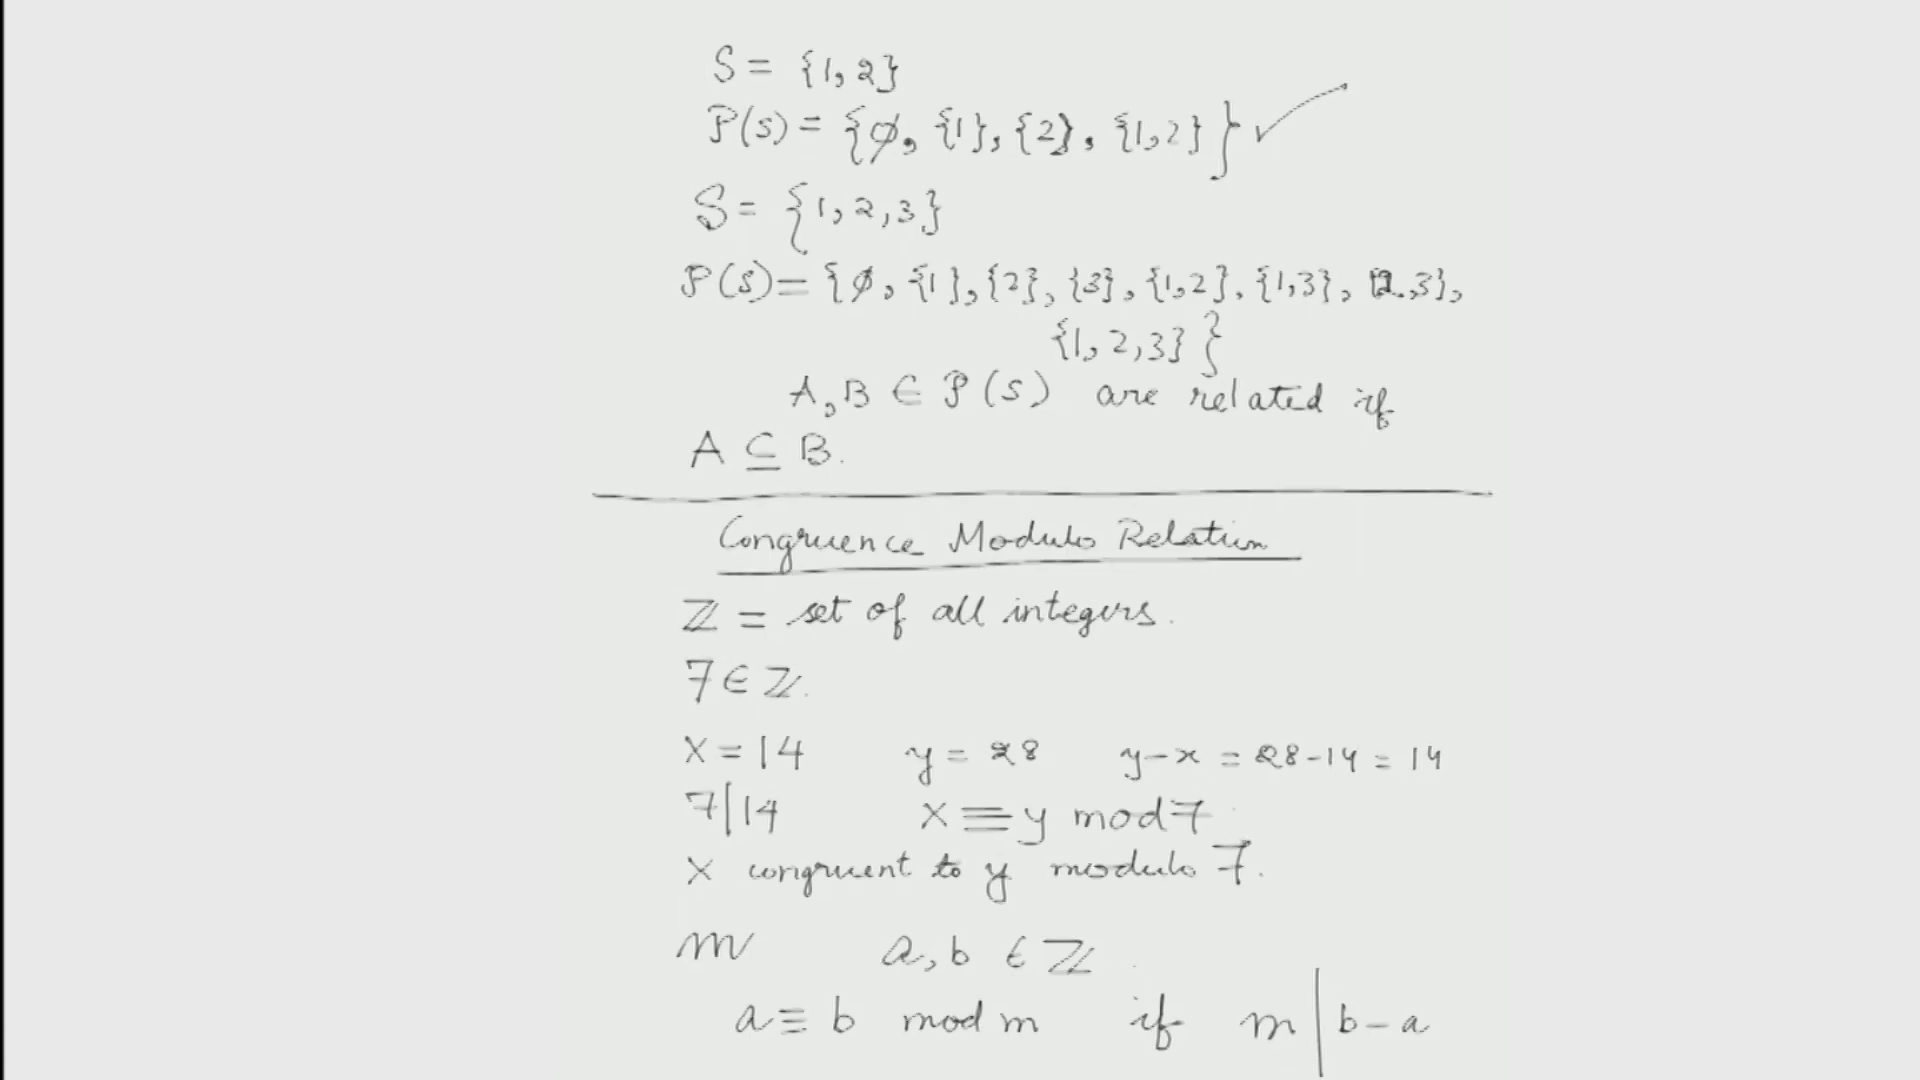 S = {1, 2}
P(s) = {∅, {1}, {2}, {1,2}} ✓
S = {1, 2, 3}
P(s) = {∅, {1}, {2}, {3}, {1,2}, {1,3}, {2,3},
{1, 2, 3}}
A, B ∈ P(s) are related if
A ⊆ B.
Congruence Modulo Relation
ℤ = set of all integers.
7 ∈ ℤ.
x = 14 y = 28 y-x = 28-14 = 14
7|14 x ≡ y mod 7
x congruent to y modulo 7.
m a, b ∈ ℤ
a ≡ b mod m if m | b-a